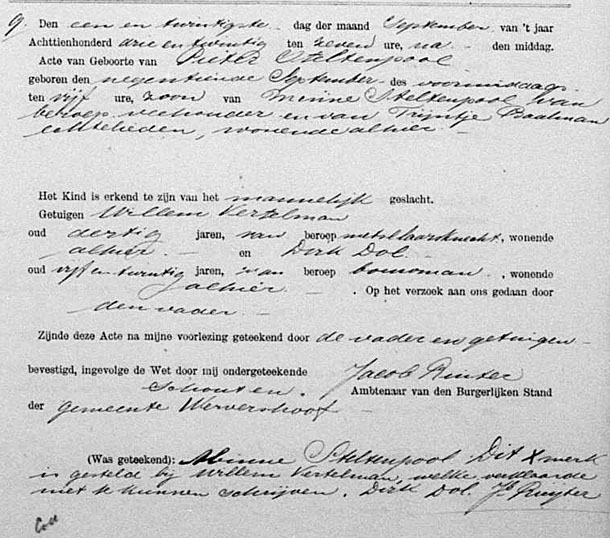 9. Den een en twintigste dag der maand September van 't jaar
Achttienhonderd drie en twintig ten zeven ure, na den middag.
Acte van Geboorte van Pieter Steltenpool
geboren den negentiende September des voormiddags
ten vijf ure, zoon van Meinne Steltenpool van
beroep veehouder en van Trijntje Baalman
echtelieden, wonende alhier
Het Kind is erkend te zijn van het mannelijk geslacht.
Getuigen Willem Verselman
oud dertig jaren, van beroep metselaarsknecht, wonende
alhier en Dirk Dol
oud vijf en twintig jaren, van beroep bouwman, wonende
alhier. Op het verzoek aan ons gedaan door
den vader.
Zijnde deze Acte na mijne voorlezing geteekend door de vader en getuigen
bevestigd, ingevolge de Wet door mij ondergeteekende Jacob Ruiter
Schouten. Ambtenaar van den Burgerlijken Stand
der gemeente Wervershoof
(Was geteekend): Minne Steltenpool Dit x merk
is gesteld bij Willem Verselman, welke verklaarde
niet te kunnen schrijven. Dirk Dol. Jb Ruyter